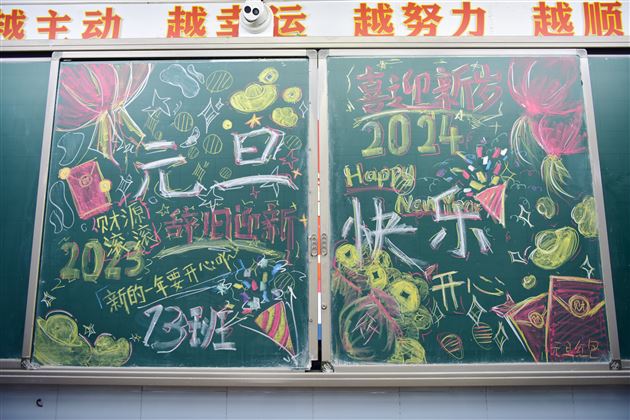 越主动 越幸运 越努力 越顺
元旦
财源
滚滚
辞旧迎新
2023
新的一年要开心呦
13班
喜迎新岁
2024
Happy
New Year
快乐
开心
元旦红包